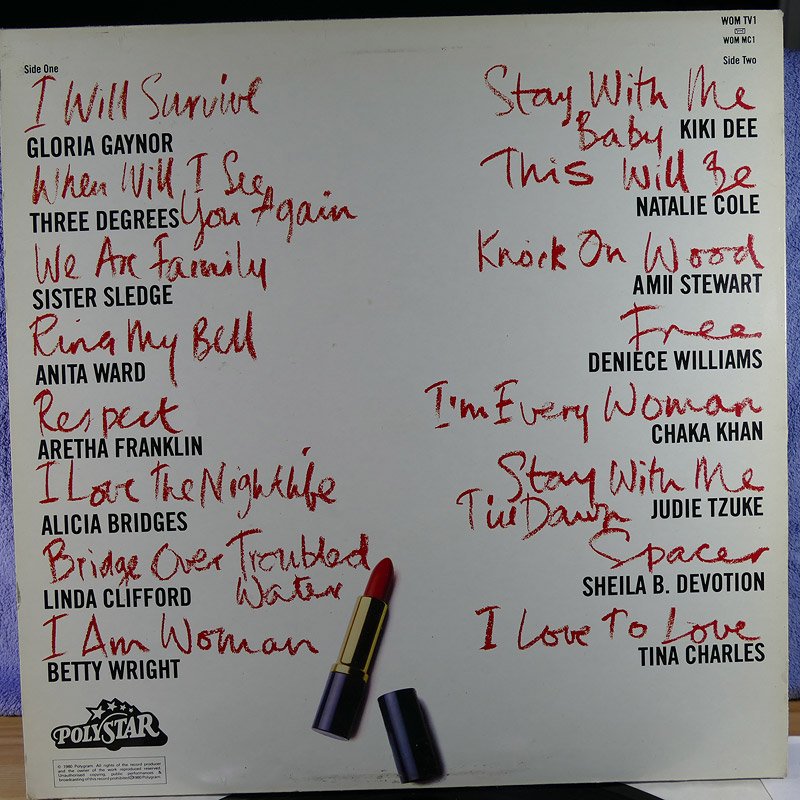 WOM TV1
WOM MC1
Side One
I Will Survive
GLORIA GAYNOR
When Will I See
You Again
THREE DEGREES
We Are Family
SISTER SLEDGE
Ring My Bell
ANITA WARD
Respect
ARETHA FRANKLIN
I Love The Nightlife
ALICIA BRIDGES
Bridge Over Troubled
Water
LINDA CLIFFORD
I Am Woman
BETTY WRIGHT
Side Two
Stay With Me
Baby
KIKI DEE
This Will Be
NATALIE COLE
Knock On Wood
AMII STEWART
Free
DENIECE WILLIAMS
I'm Every Woman
CHAKA KHAN
Stay With Me
Till Dawn
JUDIE TZUKE
Spacer
SHEILA B. DEVOTION
I Love To Love
TINA CHARLES
POLYSTAR
© 1980 Polygram. All rights of the record producer
and the owner of the work reproduced reserved.
Unauthorised copying, public performances &
broadcasting of this record prohibited. ℗ 1980 Polygram.